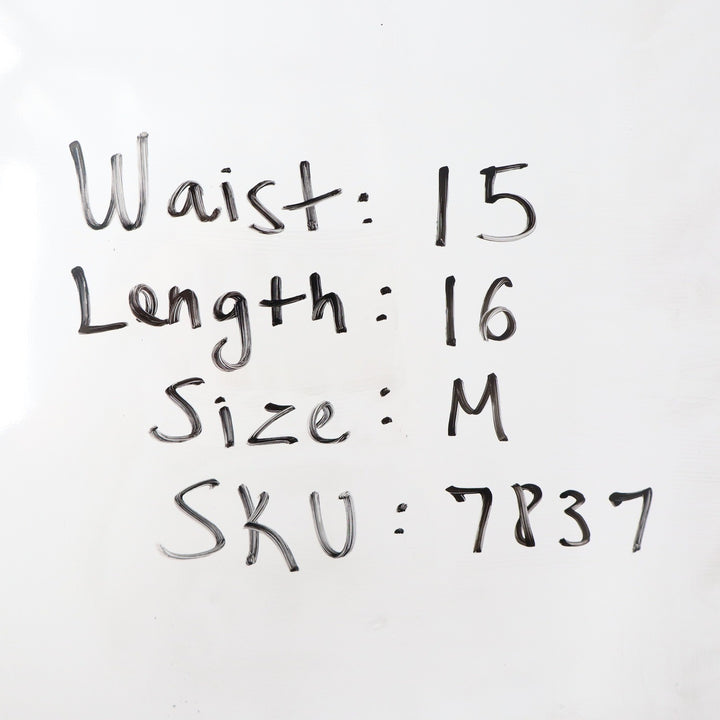 Waist: 15
Length: 16
Size: M
SKU: 7837